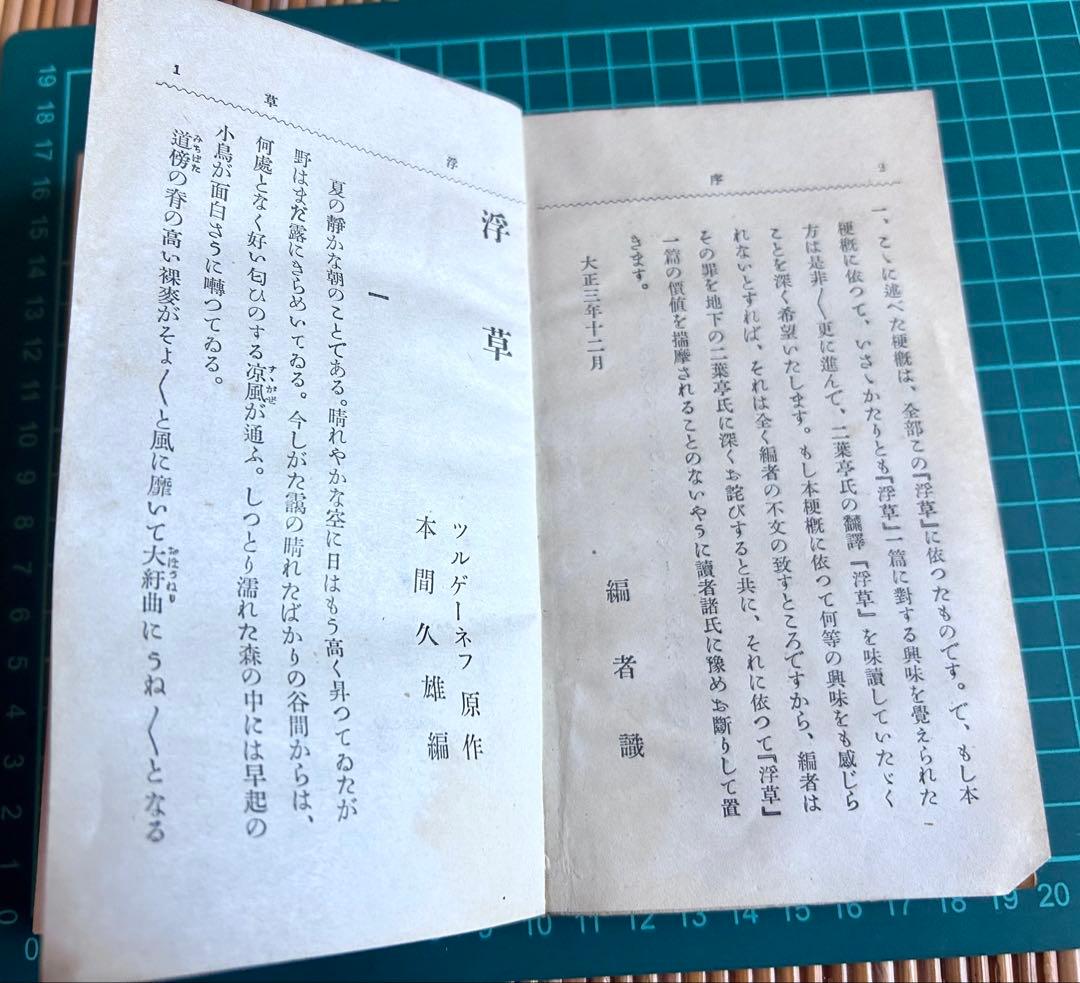 2
序
一、こゝに述べた梗概は、全部この『浮草』に依つたものです。で、もし本
梗概に依つて、いさゝかたりとも『浮草』一篇に對する興味を覺えられた
方は是非〱更に進んで、二葉亭氏の飜譯『浮草』を味讀していたゞく
ことを深く希望いたします。もし本梗概に依つて何等の興味をも感じら
れないとすれば、それは全く編者の不文の致すところですから、編者は
その罪を地下の二葉亭氏に深くお詫びすると共に、それに依つて『浮草』
一篇の價値を揣摩されることのないやうに讀者諸氏に豫めお斷りして置
きます。
大正三年十二月
編者識
浮
草
1
浮草
ツルゲーネフ原作
本間久雄編
一
夏の靜かな朝のことである。晴れやかな空に日はもう高く昇つてゐたが
野はまだ露にきらめいてゐる。今しがた靄の晴れたばかりの谷間からは、
何處となく好い匂ひのする凉風が通ふ。しつとり濡れた森の中には早起の
すゝかぜ
小鳥が面白さうに囀つてゐる。
道傍の脊の高い裸麥がそよ〱と風に靡いて大紆曲にうね〱となる
みちばた
おほうねり